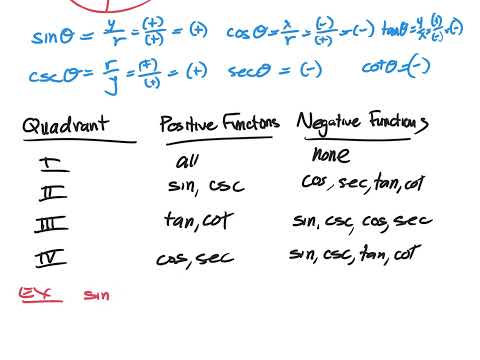 sinθ = y/r = (+)/(+) = (+) cosθ = x/r = (-)/(+) = (-) tanθ = y/x = (+)/(-) = (-)
cscθ = r/y = (+)/(+) = (+) secθ = (-) cotθ = (-)
Quadrant Positive Functons Negative Functions
I all none
II sin, csc cos, sec, tan, cot
III tan, cot sin, csc, cos, sec
IV cos, sec sin, csc, tan, cot
EX sin